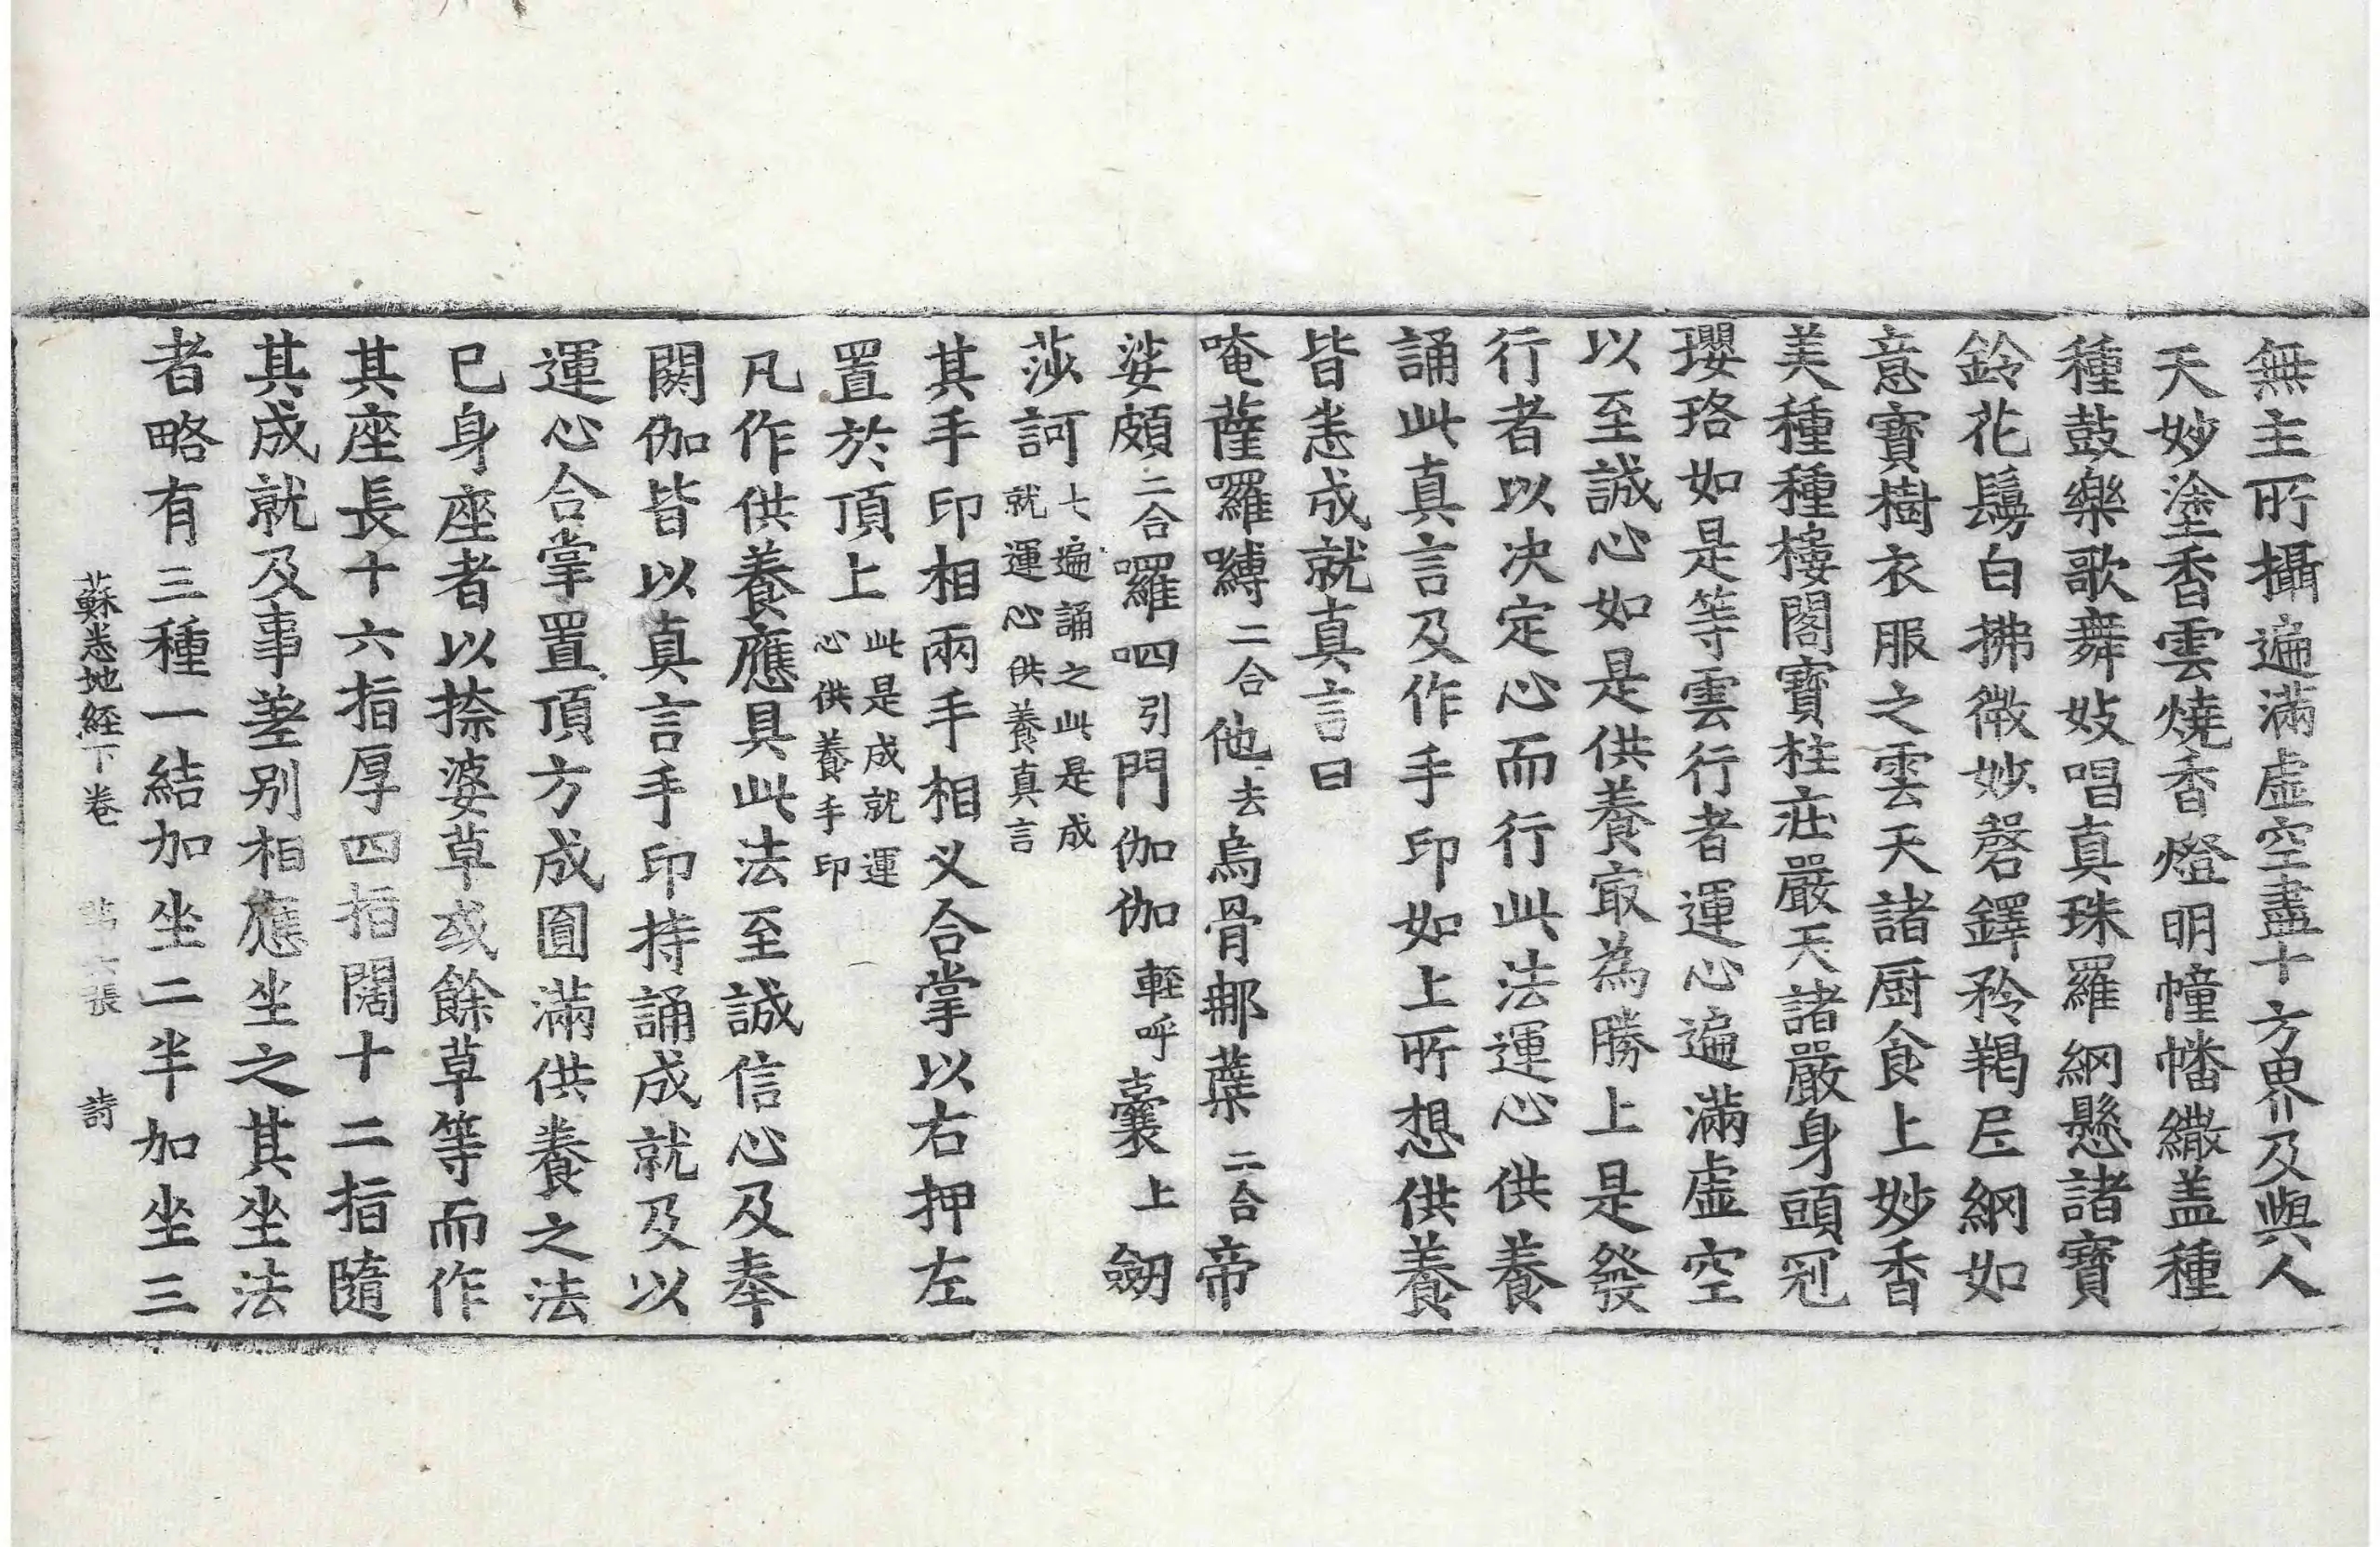 無主所攝遍滿虛空盡十方界及與人
天妙塗香雲燒香燈明幢幡繖盖種
種鼓樂歌舞妓唱真珠羅網懸諸寶
鈴花鬘白拂微妙磬鐸矜羯尼網如
意寶樹衣服之雲天諸厨食上妙香
美種種樓閣寶柱莊嚴天諸嚴身頭冠
瓔珞如是等雲行者運心遍滿虛空
以至誠心如是供養㝡為勝上是發
行者以决定心而行此法運心供養
誦此真言及作手印如上所想供養
皆悉成就真言曰
唵薩囉嚩二合他去烏骨㖿蘖二合帝
娑頗二合囉呬引門伽伽輕呼囊上劒
莎訶七遍誦之此是成就運心供養真言
其手印相兩手相义合掌以右押左
置於頂上此是成就運心供養手印
凡作供養應具此法至誠信心及奉
閼伽皆以真言手印持誦成就及以
運心合掌置頂方成圓滿供養之法
巳身座者以捺婆草或餘草等而作
其座長十六指厚四指闊十二指隨
其成就及事差别相應坐之其坐法
者略有三種一結加坐二半加坐三
蘇悉地經下卷 張 詩